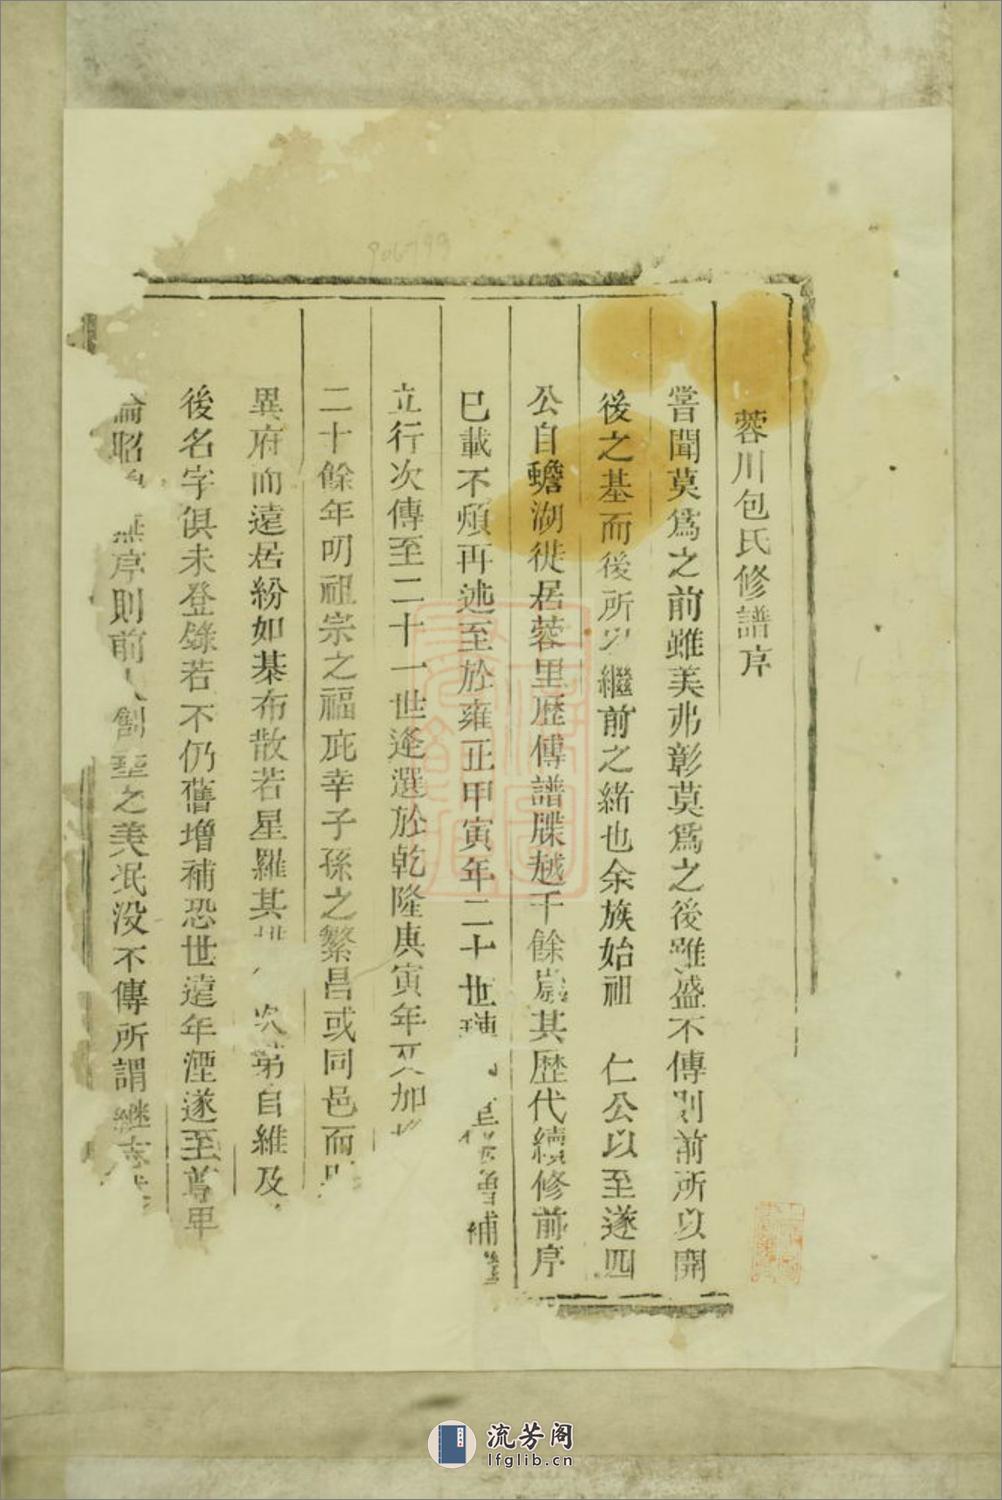 蓉川包氏修譜序
嘗聞莫爲之前雖美弗彰莫爲之後雖盛不傳則前所以開
後之基而後所以繼前之緒也余族始祖 仁公以至遂四
公自蟾湖徙居蓉里歷傳譜牒越千餘歲其歷代續修前序
已載不煩再述至於雍正甲寅年二十世 補
立行次傳至二十一世逢選於乾隆庚寅年又加
二十餘年叨祖宗之福庇幸子孫之繁昌或同邑而
異府而遠居紛如棊布散若星羅其 次第自維及
後名字俱未登錄若不仍舊增補恐世遠年湮遂至尊卑
昭 序則前人創 之美泯没不傳所謂繼志
906799
流芳阁
lfglib.cn